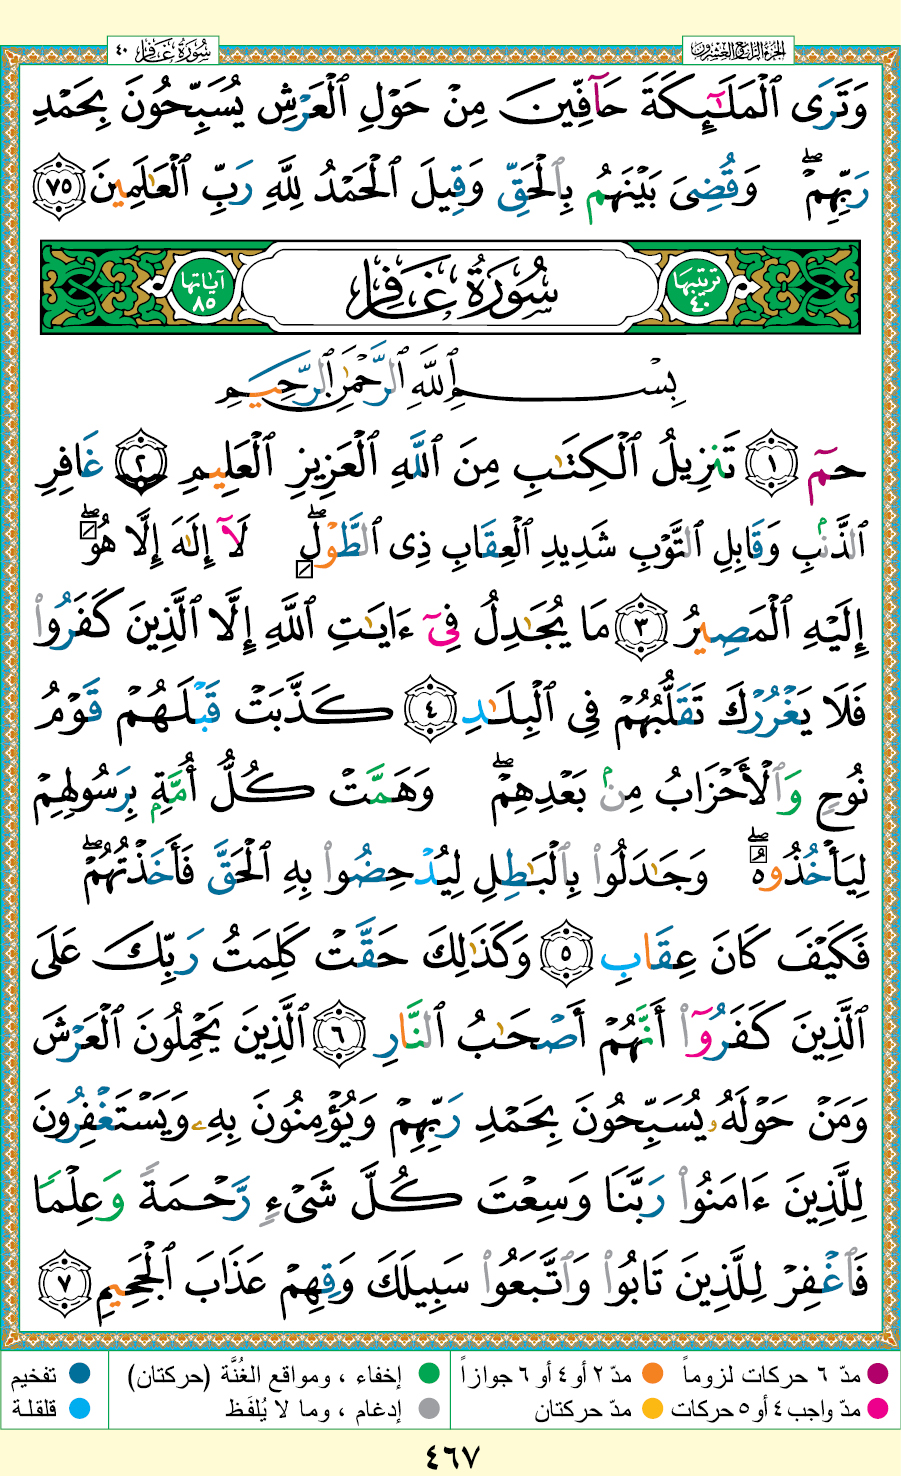 الجزء الرابع العشرون
سُورَةُ غَافِر ٤٠
وَتَرَى ٱلْمَلَـٰٓئِكَةَ حَآفِّينَ مِنْ حَوْلِ ٱلْعَرْشِ يُسَبِّحُونَ بِحَمْدِ
رَبِّهِمْ ۖ وَقُضِىَ بَيْنَهُم بِٱلْحَقِّ وَقِيلَ ٱلْحَمْدُ لِلَّهِ رَبِّ ٱلْعَـٰلَمِينَ ٧٥
ترتيبها ٤٠ سُورَةُ غَافِر آياتها ٨٥
بِسْمِ ٱللَّهِ ٱلرَّحْمَـٰنِ ٱلرَّحِيمِ
حمٓ ١ تَنزِيلُ ٱلْكِتَـٰبِ مِنَ ٱللَّهِ ٱلْعَزِيزِ ٱلْعَلِيمِ ٢ غَافِرِ
ٱلذَّنۢبِ وَقَابِلِ ٱلتَّوْبِ شَدِيدِ ٱلْعِقَابِ ذِى ٱلطَّوْلِ ۖ لَآ إِلَـٰهَ إِلَّا هُوَ ۖ
إِلَيْهِ ٱلْمَصِيرُ ٣ مَا يُجَـٰدِلُ فِىٓ ءَايَـٰتِ ٱللَّهِ إِلَّا ٱلَّذِينَ كَفَرُوا۟
فَلَا يَغْرُرْكَ تَقَلُّبُهُمْ فِى ٱلْبِلَـٰدِ ٤ كَذَّبَتْ قَبْلَهُمْ قَوْمُ
نُوحٍ وَٱلْأَحْزَابُ مِنۢ بَعْدِهِمْ ۖ وَهَمَّتْ كُلُّ أُمَّةٍۭ بِرَسُولِهِمْ
لِيَأْخُذُوهُ ۖ وَجَـٰدَلُوا۟ بِٱلْبَـٰطِلِ لِيُدْحِضُوا۟ بِهِ ٱلْحَقَّ فَأَخَذْتُهُمْ ۖ
فَكَيْفَ كَانَ عِقَابِ ٥ وَكَذَٰلِكَ حَقَّتْ كَلِمَتُ رَبِّكَ عَلَى
ٱلَّذِينَ كَفَرُوٓا۟ أَنَّهُمْ أَصْحَـٰبُ ٱلنَّارِ ٦ ٱلَّذِينَ يَحْمِلُونَ ٱلْعَرْشَ
وَمَنْ حَوْلَهُۥ يُسَبِّحُونَ بِحَمْدِ رَبِّهِمْ وَيُؤْمِنُونَ بِهِۦ وَيَسْتَغْفِرُونَ
لِلَّذِينَ ءَامَنُوا۟ رَبَّنَا وَسِعْتَ كُلَّ شَىْءٍ رَّحْمَةً وَعِلْمًا
فَٱغْفِرْ لِلَّذِينَ تَابُوا۟ وَٱتَّبَعُوا۟ سَبِيلَكَ وَقِهِمْ عَذَابَ ٱلْجَحِيمِ ٧
مدّ ٦ حركات لزوماً مدّ ٢ أو ٤ أو ٦ جوازاً إخفاء ، ومواقع الغُنَّة (حركتان) تفخيم
مدّ واجب ٤ أو ٥ حركات مدّ حركتان إدغام ، وما لا يُلفَظ قلقلة
٤٦٧